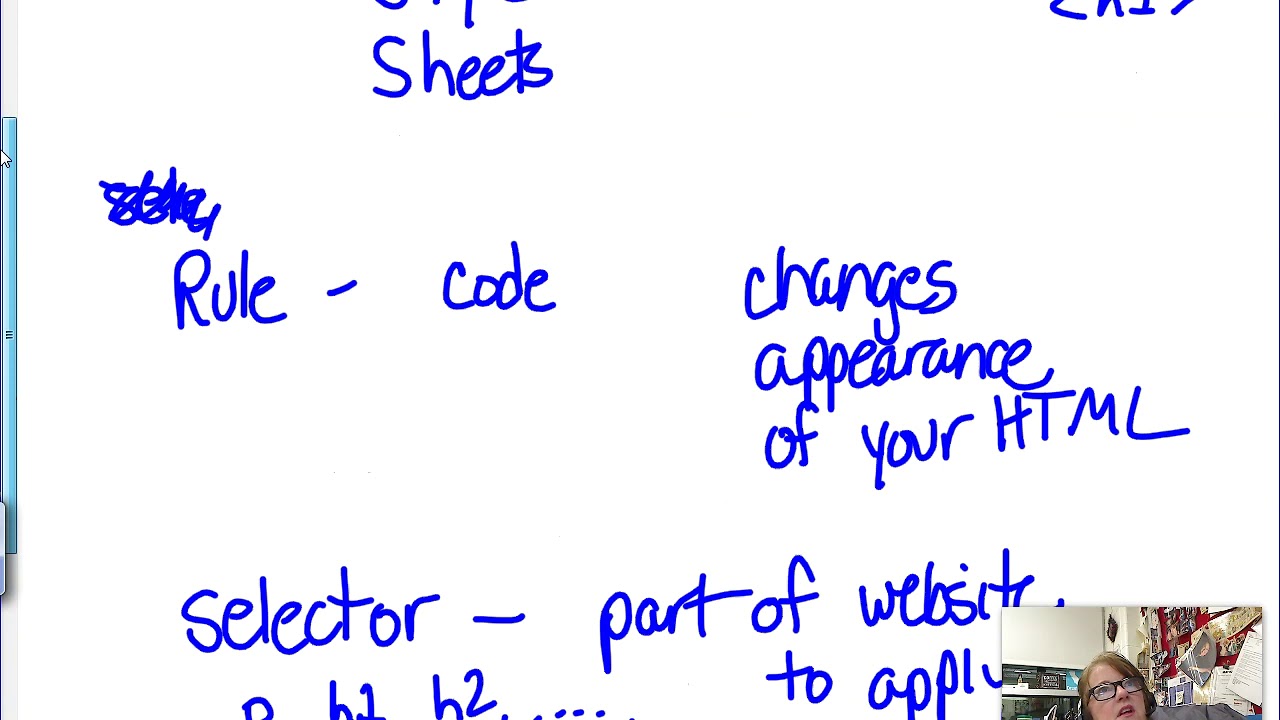 <h1>
Sheets
Rule - code changes
appearance
of your HTML
selector - part of website
to apply
h1 h2.....